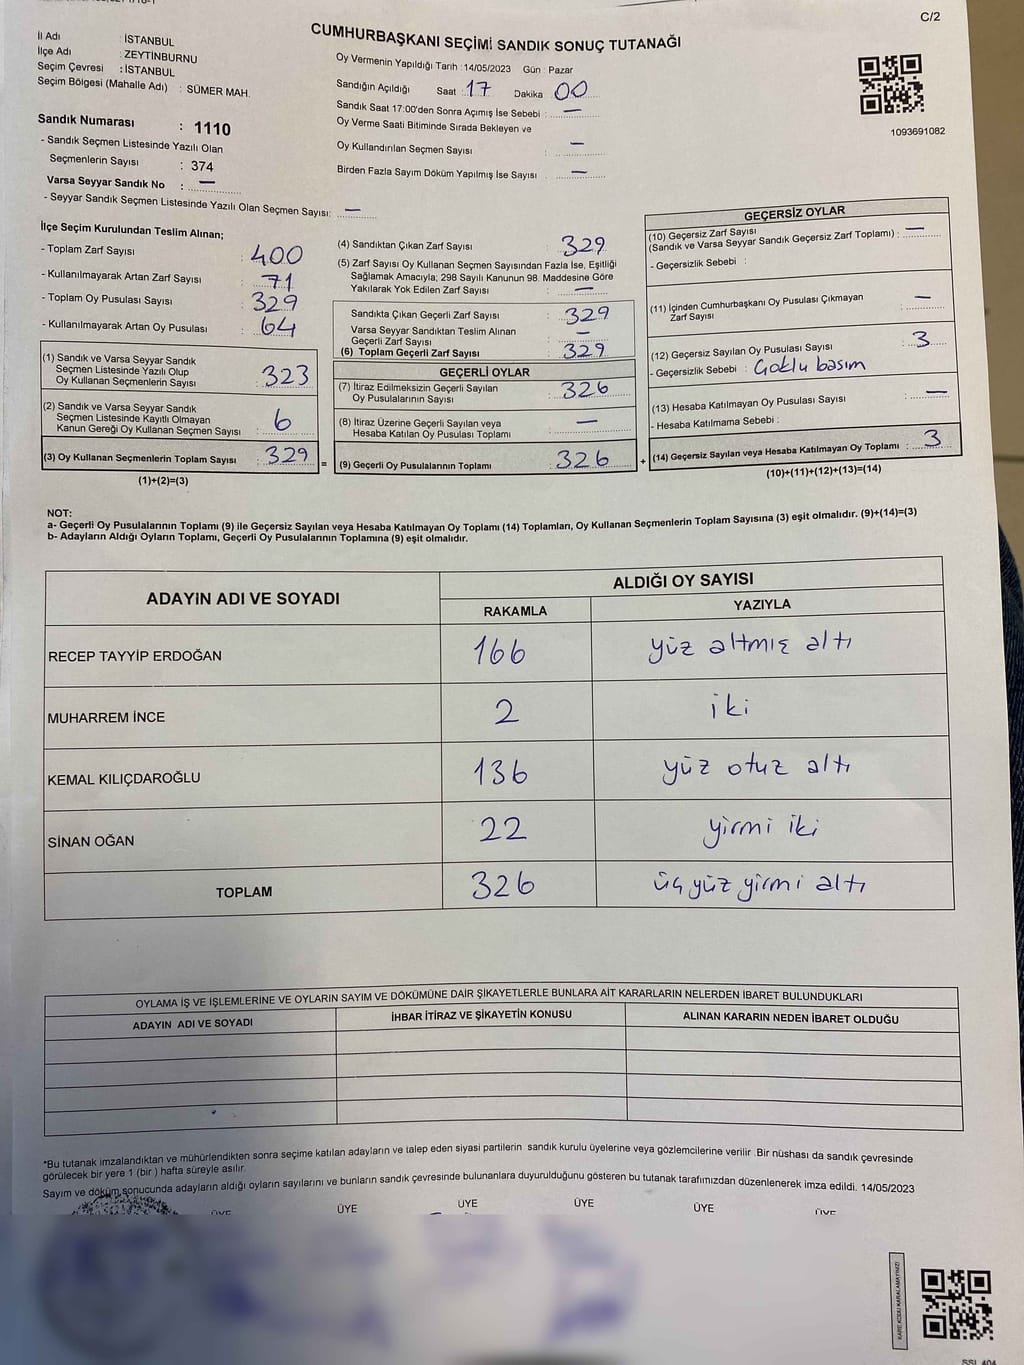 C/2
CUMHURBAŞKANI SEÇİMİ SANDIK SONUÇ TUTANAĞI
İl Adı : İSTANBUL
İlçe Adı : ZEYTİNBURNU
Seçim Çevresi : İSTANBUL
Seçim Bölgesi (Mahalle Adı) : SÜMER MAH.
Oy Vermenin Yapıldığı Tarih : 14/05/2023 Gün : Pazar
Sandığın Açıldığı Saat : 17 Dakika 00
Sandık Saat 17:00'den Sonra Açımış İse Sebebi : —
Oy Verme Saati Bitiminde Sırada Bekleyen ve
Oy Kullandırılan Seçmen Sayısı : —
Birden Fazla Sayım Döküm Yapılmış İse Sayısı : —
1093691082
Sandık Numarası : 1110
- Sandık Seçmen Listesinde Yazılı Olan
Seçmenlerin Sayısı : 374
Varsa Seyyar Sandık No : —
- Seyyar Sandık Seçmen Listesinde Yazılı Olan Seçmen Sayısı: —
İlçe Seçim Kurulundan Teslim Alınan;
- Toplam Zarf Sayısı : 400
- Kullanılmayarak Artan Zarf Sayısı : 71
- Toplam Oy Pusulası Sayısı : 329
- Kullanılmayarak Artan Oy Pusulası : 64
(1) Sandık ve Varsa Seyyar Sandık
Seçmen Listesinde Yazılı Olup
Oy Kullanan Seçmenlerin Sayısı : 323
(2) Sandık ve Varsa Seyyar Sandık
Seçmen Listesinde Kayıtlı Olmayan
Kanun Gereği Oy Kullanan Seçmen Sayısı : 6
(3) Oy Kullanan Seçmenlerin Toplam Sayısı : 329 =
(1)+(2)=(3)
(4) Sandıktan Çıkan Zarf Sayısı : 329
(5) Zarf Sayısı Oy Kullanan Seçmen Sayısından Fazla İse, Eşitliği
Sağlamak Amacıyla; 298 Sayılı Kanunun 98. Maddesine Göre
Yakılarak Yok Edilen Zarf Sayısı : —
Sandıkta Çıkan Geçerli Zarf Sayısı : 329
Varsa Seyyar Sandıktan Teslim Alınan
Geçerli Zarf Sayısı : —
(6) Toplam Geçerli Zarf Sayısı : 329
GEÇERLİ OYLAR
(7) İtiraz Edilmeksizin Geçerli Sayılan
Oy Pusulalarının Sayısı : 326
(8) İtiraz Üzerine Geçerli Sayılan veya
Hesaba Katılan Oy Pusulası Toplamı : —
(9) Geçerli Oy Pusulalarının Toplamı : 326 +
GEÇERSİZ OYLAR
(10) Geçersiz Zarf Sayısı
(Sandık ve Varsa Seyyar Sandık Geçersiz Zarf Toplamı) : —
- Geçersizlik Sebebi :
(11) İçinden Cumhurbaşkanı Oy Pusulası Çıkmayan
Zarf Sayısı : —
(12) Geçersiz Sayılan Oy Pusulası Sayısı : 3
- Geçersizlik Sebebi : Çoklu basım
(13) Hesaba Katılmayan Oy Pusulası Sayısı : —
- Hesaba Katılmama Sebebi :
(14) Geçersiz Sayılan veya Hesaba Katılmayan Oy Toplamı : 3
(10)+(11)+(12)+(13)=(14)
NOT:
a- Geçerli Oy Pusulalarının Toplamı (9) ile Geçersiz Sayılan veya Hesaba Katılmayan Oy Toplamı (14) Toplamları, Oy Kullanan Seçmenlerin Toplam Sayısına (3) eşit olmalıdır. (9)+(14)=(3)
b- Adayların Aldığı Oyların Toplamı, Geçerli Oy Pusulalarının Toplamına (9) eşit olmalıdır.
ADAYIN ADI VE SOYADI
ALDIĞI OY SAYISI
RAKAMLA YAZIYLA
RECEP TAYYİP ERDOĞAN 166 yüz altmış altı
MUHARREM İNCE 2 iki
KEMAL KILIÇDAROĞLU 136 yüz otuz altı
SİNAN OĞAN 22 yirmi iki
TOPLAM 326 üç yüz yirmi altı
OYLAMA İŞ VE İŞLEMLERİNE VE OYLARIN SAYIM VE DÖKÜMÜNE DAİR ŞİKAYETLERLE BUNLARA AİT KARARLARIN NELERDEN İBARET BULUNDUKLARI
ADAYIN ADI VE SOYADI İHBAR İTİRAZ VE ŞİKAYETİN KONUSU ALINAN KARARIN NEDEN İBARET OLDUĞU
*Bu tutanak imzalandıktan ve mühürlendikten sonra seçime katılan adayların ve talep eden siyasi partilerin sandık kurulu üyelerine veya gözlemcilerine verilir .Bir nüshası da sandık çevresinde
görülecek bir yere 1 (bir ) hafta süreyle asılır.
Sayım ve döküm sonucunda adayların aldığı oyların sayılarını ve bunların sandık çevresinde bulunanlara duyurulduğunu gösteren bu tutanak tarafımızdan düzenlenerek imza edildi. 14/05/2023
ÜYE ÜYE ÜYE ÜYE ÜYE ÜYE
KARE KODU KARALAMAYINIZ!